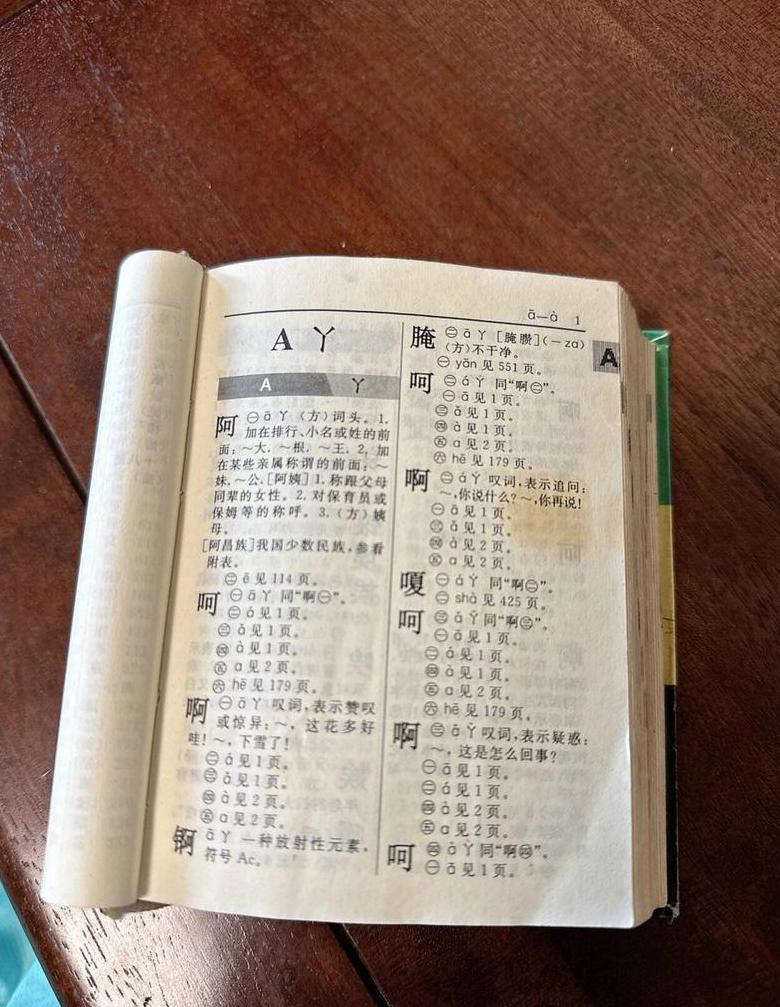 ā—à 1
A ㄚ
A ㄚ
阿 ㊀ ā ㄚ (方)词头。1.
加在排行、小名或姓的前
面：～大. ～根. ～王. 2. 加
在某些亲属称谓的前面：～
妹. ～公. [阿姨] 1. 称跟父母
同辈的女性。2. 对保育员或
保姆等的称呼。3. (方) 姨
母。
[阿昌族]我国少数民族，参看
附表。
㊁ ē 见 114 页。
呵 ㊀ ā ㄚ 同“啊㊀”。
㊁ á 见 1 页。
㊂ ǎ 见 1 页。
㊃ à 见 1 页。
㊄ a 见 2 页。
㊅ hē 见 179 页。
啊 ㊀ ā ㄚ 叹词，表示赞叹
或惊异：～，这花多好
哇！～，下雪了！
㊁ á 见 1 页。
㊂ ǎ 见 1 页。
㊃ à 见 2 页。
㊄ a 见 2 页。
锕 ā ㄚ 一种放射性元素，
符号 Ac。
腌 ㊁ ā ㄚ [腌臜](－za)
(方)不干净。
㊀ yān 见 551 页。
呵 ㊁ á ㄚˊ 同“啊㊁”。
㊀ ā 见 1 页。
㊂ ǎ 见 1 页。
㊃ à 见 1 页。
㊄ a 见 2 页。
㊅ hē 见 179 页。
啊 ㊁ á ㄚˊ 叹词，表示追问：
～，你说什么？～，你再说！
㊀ ā 见 1 页。
㊂ ǎ 见 1 页。
㊃ à 见 2 页。
㊄ a 见 2 页。
嗄 ㊀ á ㄚˊ 同“啊㊁”。
㊁ shà 见 425 页。
呵 ㊂ ǎ ㄚˇ 同“啊㊂”。
㊀ ā 见 1 页。
㊁ á 见 1 页。
㊃ à 见 1 页。
㊄ a 见 2 页。
㊅ hē 见 179 页。
啊 ㊂ ǎ ㄚˇ 叹词，表示疑惑：
～，这是怎么回事？
㊀ ā 见 1 页。
㊁ á 见 1 页。
㊃ à 见 2 页。
㊄ a 见 2 页。
呵 ㊃ à ㄚˋ 同“啊㊃”。
㊀ ā 见 1 页。
A